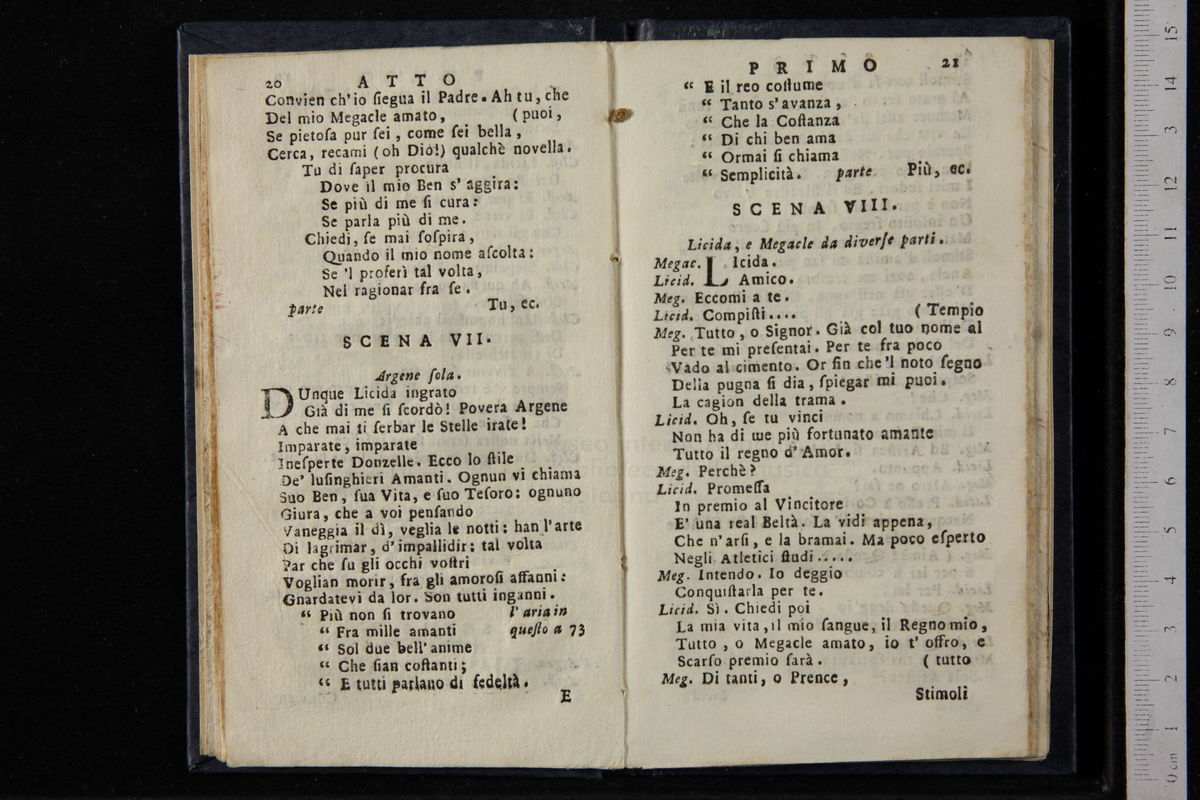 20 ATTO
Convien ch'io ſiegua il Padre. Ah tu, che
Del mio Megacle amato, (puoi,
Se pietoſa pur ſei, come ſei bella,
Cerca, recami (oh Dio!) qualchè novella.
Tu di ſaper procura
Dove il mio Ben s'aggira:
Se più di me ſi cura:
Se parla più di me.
Chiedi, ſe mai ſoſpira,
Quando il mio nome aſcolta:
Se 'l proferì tal volta,
Nel ragionar fra ſe.
parte Tu, ec.
SCENA VII.
Argene ſola.
DUnque Licida ingrato
Già di me ſi ſcordò! Povera Argene
A che mai ti ſerbar le Stelle irate!
Imparate, imparate
Ineſperte Donzelle. Ecco lo ſtile
De' luſinghieri Amanti. Ognun vi chiama
Suo Ben, ſua Vita, e ſuo Teſoro: ognuno
Giura, che a voi penſando
Vaneggia il dì, veglia le notti: han l'arte
Di lagrimar, d'impallidir: tal volta
Par che ſu gli occhi voſtri
Voglian morir, fra gli amoroſi affanni:
Gnardatevi da lor. Son tutti inganni.
“ Più non ſi trovano l'aria in
“ Fra mille amanti queſto a 73
“ Sol due bell'anime
“ Che ſian coſtanti;
“ E tutti parlano di fedeltà.
E
PRIMO 21
“ E il reo coſtume
“ Tanto s'avanza,
“ Che la Coſtanza
“ Di chi ben ama
“ Ormai ſi chiama
“ Semplicità. parte Più, ec.
SCENA VIII.
Licida, e Megacle da diverſe parti.
Megac. LIcida.
Licid. Amico.
Meg. Eccomi a te.
Licid. Compiſti.... (Tempio
Meg. Tutto, o Signor. Già col tuo nome al
Per te mi preſentai. Per te fra poco
Vado al cimento. Or fin che'l noto ſegno
Della pugna ſi dia, ſpiegar mi puoi.
La cagion della trama.
Licid. Oh, ſe tu vinci
Non ha di me più fortunato amante
Tutto il regno d'Amor.
Meg. Perchè?
Licid. Promeſſa
In premio al Vincitore
E' una real Beltà. La vidi appena,
Che n'arſi, e la bramai. Ma poco eſperto
Negli Atletici ſtudi.....
Meg. Intendo. Io deggio
Conquiſtarla per te.
Licid. Sì. Chiedi poi
La mia vita, il mio ſangue, il Regno mio,
Tutto, o Megacle amato, io t'offro, e
Scarſo premio ſarà. (tutto
Meg. Di tanti, o Prence,
Stimoli